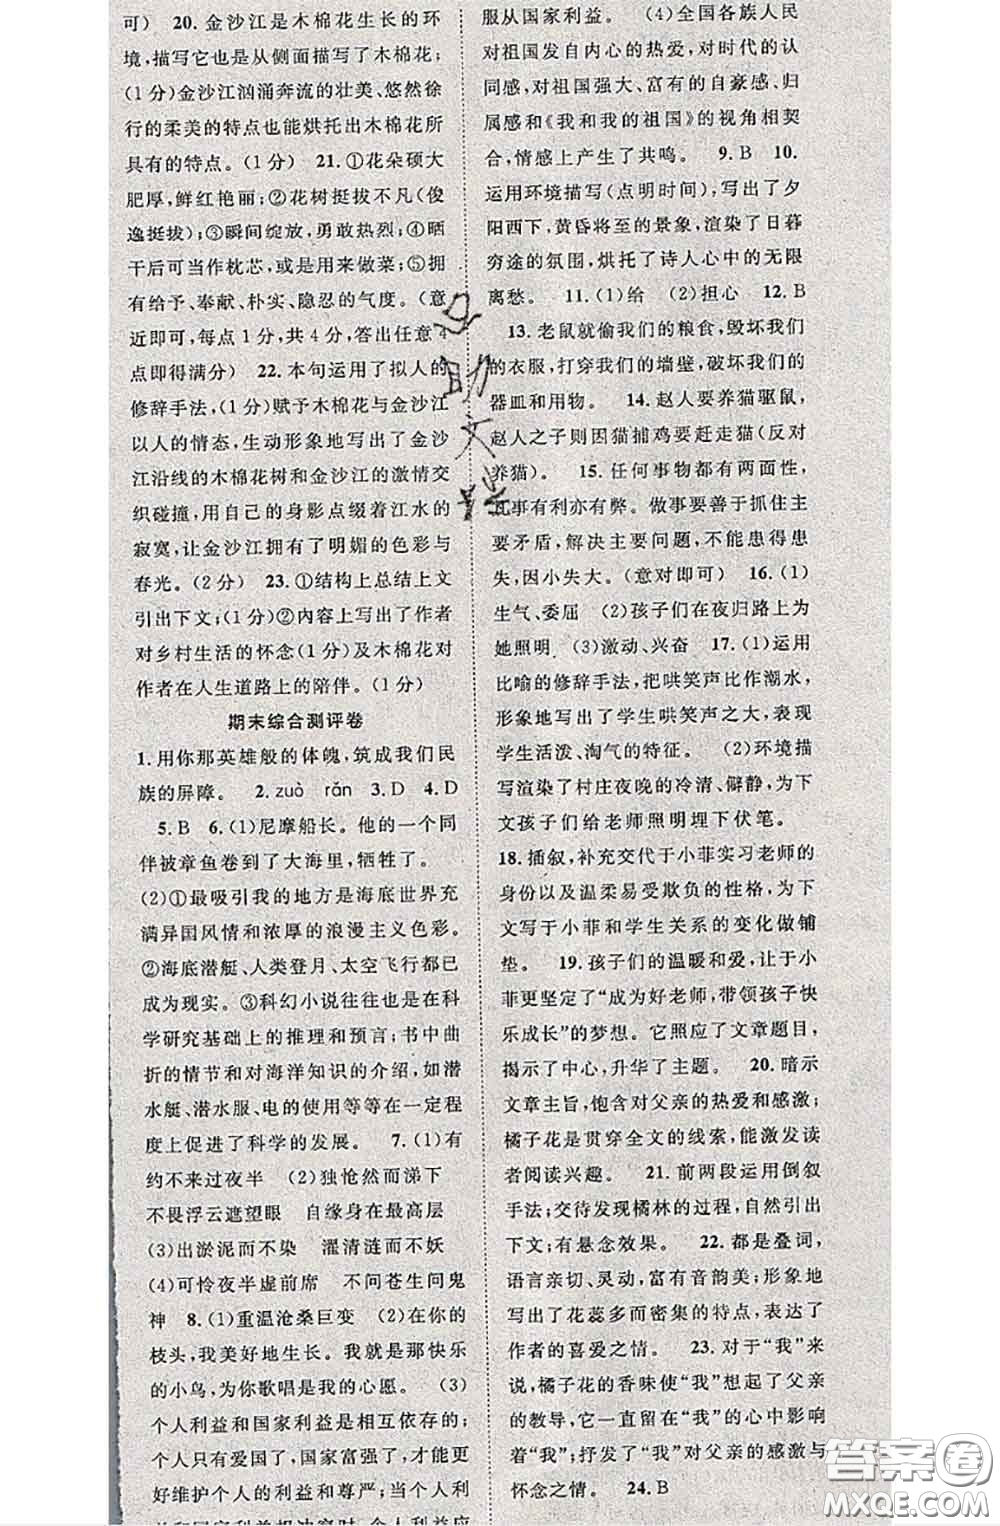 可) 20. 金沙江是木棉花生长的环
境,描写它也是从侧面描写了木棉花;
(1分)金沙江汹涌奔流的壮美、悠然徐
行的柔美的特点也能烘托出木棉花所
具有的特点。(1分) 21. ①花朵硕大
肥厚,鲜红艳丽;②花树挺拔不凡(俊
逸挺拔);③瞬间绽放,勇敢热烈;④晒
干后可当作枕芯,或是用来做菜;⑤拥
有给予、奉献、朴实、隐忍的气度。(意
近即可,每点1分,共4分,答出任意4
点即得满分) 22. 本句运用了拟人的
修辞手法,(1分)赋予木棉花与金沙江
以人的情态,生动形象地写出了金沙
江沿线的木棉花树和金沙江的激情交
织碰撞,用自己的身影点缀着江水的
寂寞,让金沙江拥有了明媚的色彩与
春光。(2分) 23. ①结构上总结上文
引出下文;(1分)②内容上写出了作者
对乡村生活的怀念(1分)及木棉花对
作者在人生道路上的陪伴。(1分)
期末综合测评卷
1. 用你那英雄般的体魄,筑成我们民
族的屏障。 2. zuò rǎn 3. D 4. D
5. B 6. (1)尼摩船长。他的一个同
伴被章鱼卷到了大海里,牺牲了。
(2)①最吸引我的地方是海底世界充
满异国风情和浓厚的浪漫主义色彩。
②海底潜艇、人类登月、太空飞行都已
成为现实。③科幻小说往往也是在科
学研究基础上的推理和预言;书中曲
折的情节和对海洋知识的介绍,如潜
水艇、潜水服、电的使用等等在一定程
度上促进了科学的发展。 7. (1)有
约不来过夜半 (2)独怆然而涕下
不畏浮云遮望眼 自缘身在最高层
(3)出淤泥而不染 濯清涟而不妖
(4)可怜夜半虚前席 不问苍生问鬼
神 8. (1)重温沧桑巨变 (2)在你的
枝头,我美好地生长。我就是那快乐
的小鸟,为你歌唱是我的心愿。 (3)
个人利益和国家利益是相互依存的;
个人只有爱国了,国家富强了,才能更
好维护个人的利益和尊严;当个人利
益和国家利益相冲突时,个人利益应
服从国家利益。 (4)全国各族人民
对祖国发自内心的热爱,对时代的认
同感,对祖国强大、富有的自豪感、归
属感和《我和我的祖国》的视角相契
合,情感上产生了共鸣。 9. B 10.
运用环境描写(点明时间),写出了夕
阳西下,黄昏将至的景象,渲染了日暮
穷途的氛围,烘托了诗人心中的无限
离愁。 11. (1)给 (2)担心 12. B
13. 老鼠就偷我们的粮食,毁坏我们
的衣服,打穿我们的墙壁,破坏我们的
器皿和用物。 14. 赵人要养猫驱鼠,
赵人之子则因猫捕鸡要赶走猫(反对
养猫)。 15. 任何事物都有两面性,
凡事有利亦有弊。做事要善于抓住主
要矛盾,解决主要问题,不能患得患
失,因小失大。(意对即可) 16. (1)
生气、委屈 (2)孩子们在夜归路上为
她照明 (3)激动、兴奋 17. (1)运用
比喻的修辞手法,把哄笑声比作潮水,
形象地写出了学生哄笑声之大,表现
学生活泼、淘气的特征。 (2)环境描
写渲染了村庄夜晚的冷清、僻静,为下
文孩子们给老师照明埋下伏笔。
18. 插叙,补充交代于小菲实习老师的
身份以及温柔易受欺负的性格,为下
文写于小菲和学生关系的变化做铺
垫。 19. 孩子们的温暖和爱,让于小
菲更坚定了“成为好老师,带领孩子快
乐成长”的梦想。它照应了文章题目,
揭示了中心,升华了主题。 20. 暗示
文章主旨,饱含对父亲的热爱和感激;
橘子花是贯穿全文的线索,能激发读
者阅读兴趣。 21. 前两段运用倒叙
手法;交待发现橘林的过程,自然引出
下文;有悬念效果。 22. 都是叠词,
语言亲切、灵动,富有音韵美;形象地
写出了花蕊多而密集的特点,表达了
作者的喜爱之情。 23. 对于“我”来
说,橘子花的香味使“我”想起了父亲
的教导,它一直留在“我”的心中影响
着“我”;抒发了“我”对父亲的感激与
怀念之情。 24. B
答案圈
MXQE.COM